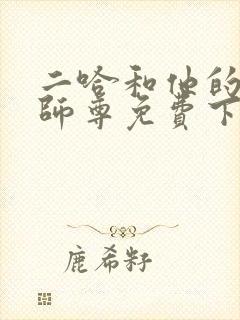 二哈和他的
師尊免費下
鹿希籽